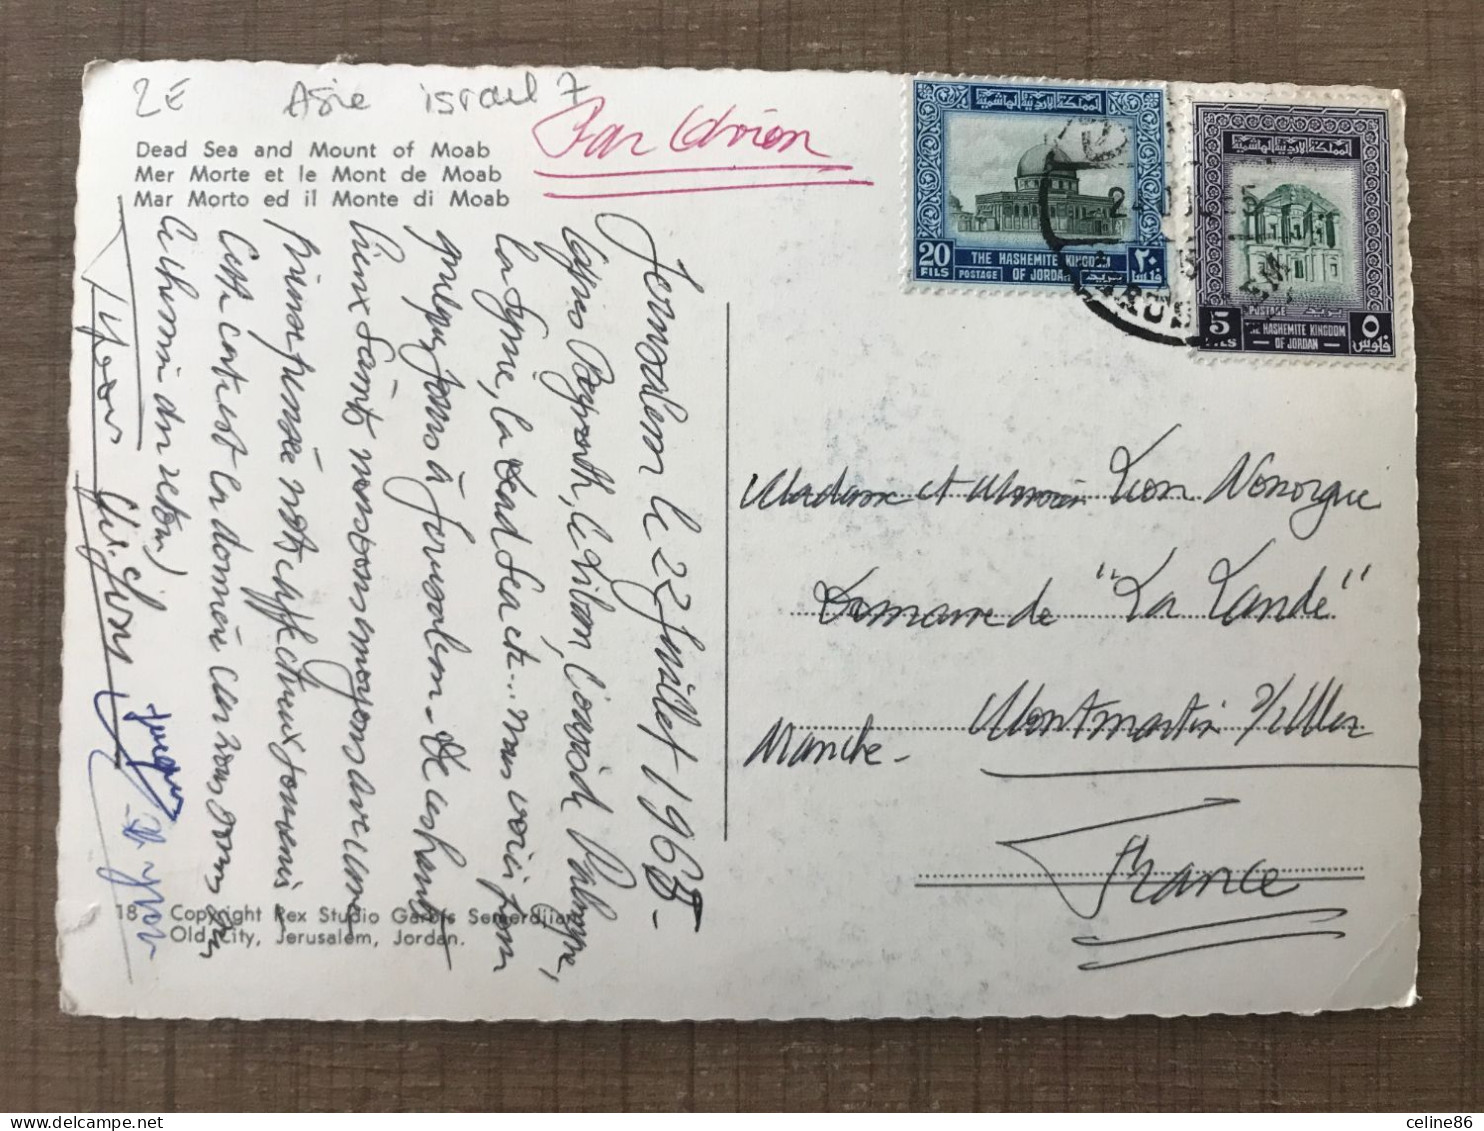 2E Asie israel 7
Dead Sea and Mount of Moab
Mer Morte et le Mont de Moab
Mar Morto ed il Monte di Moab
Par Avion
المملكة الاردنية الهاشمية
20 FILS
THE HASHEMITE KINGDOM
POSTAGE OF JORDAN بريد
٢٠ فلسا
المملكة الاردنية الهاشمية
POSTAGE بريد
5 FILS
THE HASHEMITE KINGDOM
OF JORDAN
٥ فلوس
Jerusalem le 22 Juillet 1965-
Après Beyrouth, le Liban, Palmyre,
la Syrie, la Dead Sea etc... nous voici pour
quelques jours à Jérusalem - De ces hauts
lieux Saints nous vous envoyons avec une
pieuse pensée notre affectueux souvenir
Cette carte est la dernière car nous sommes sur
le chemin du retour)
Jacques
Madame et Monsieur Léon
Domaine de "La Lande"
Montmartin s/Mer
Manche-
France
18 Copyright Rex Studio Garbis Semerdjian
Old City, Jerusalem, Jordan.
celine86